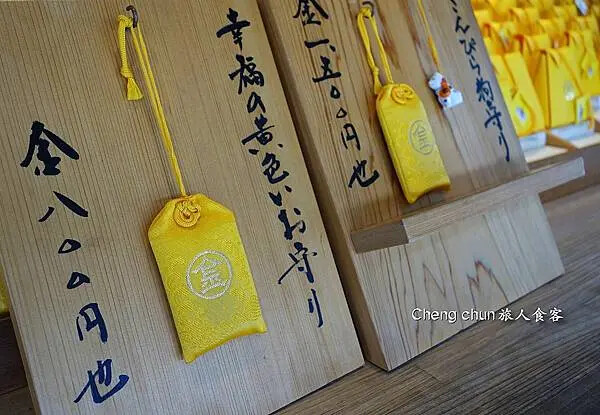 幸福の黄色いお守り
金八〇〇円也
金
こんぴら狗守り
金一、五〇〇円也
金
Cheng chun 旅人食客